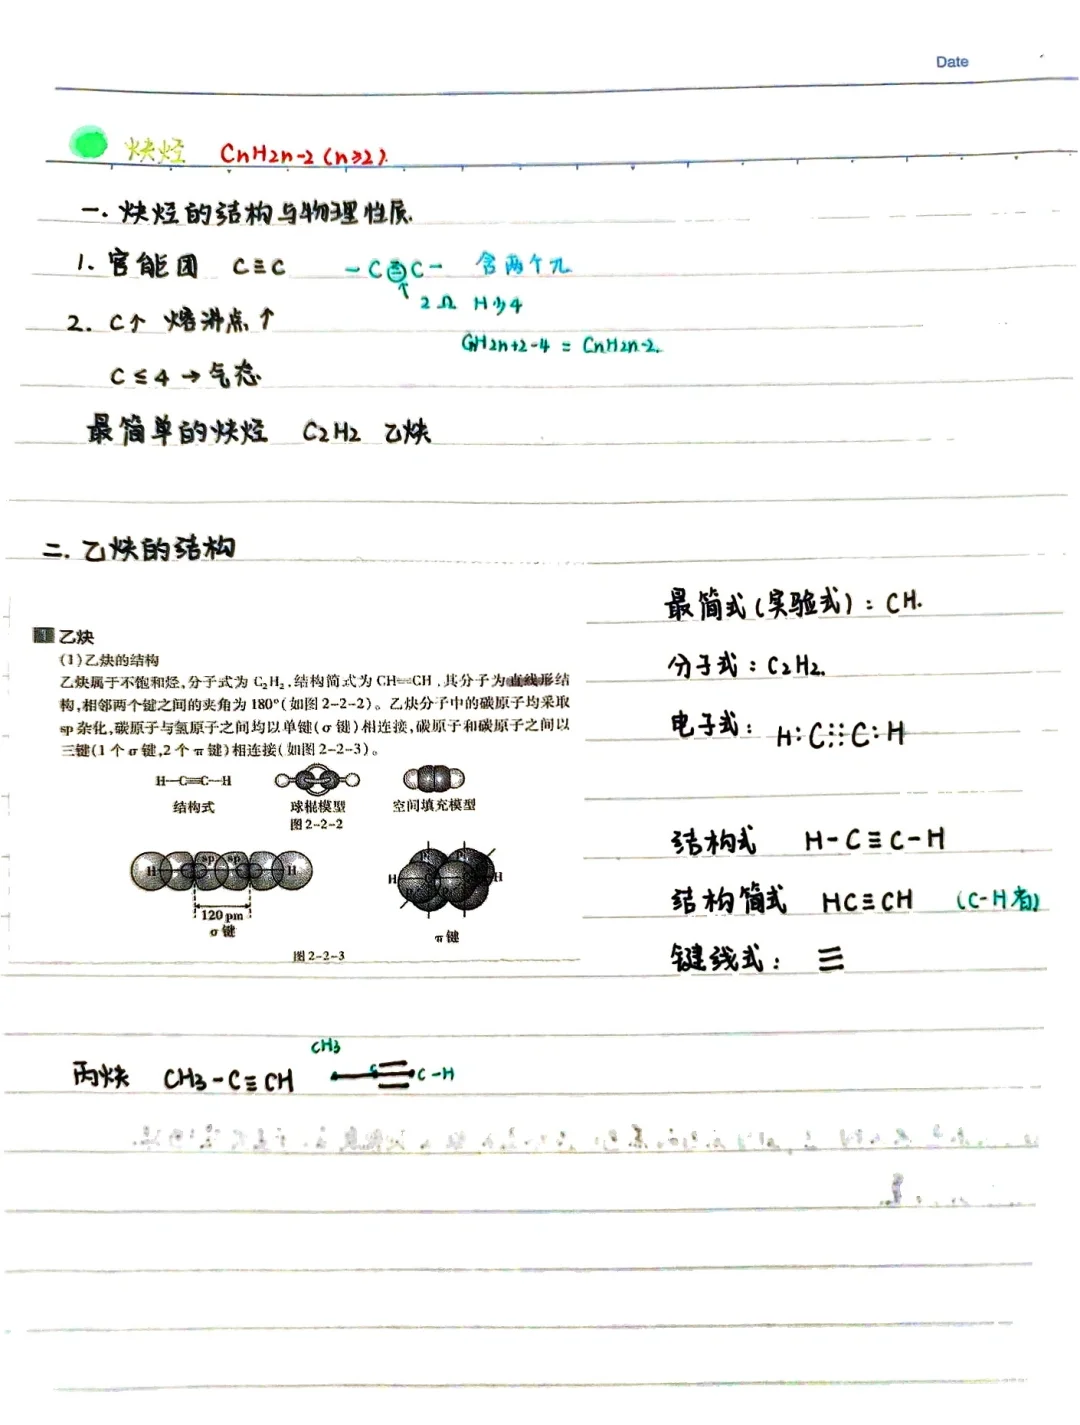 Date
炔烃 CnH2n-2 (n≥2).
一. 炔烃的结构与物理性质.
1. 官能团 C≡C -C≡C- 含两个π
2Ω H少4
2. C↑ 熔沸点↑
CnH2n+2-4 = CnH2n-2.
C≤4→气态.
最简单的炔烃 C2H2 乙炔
二. 乙炔的结构
1 乙炔
(1)乙炔的结构
乙炔属于不饱和烃,分子式为 C₂H₂,结构简式为 CH≡CH,其分子为直线形结
构,相邻两个键之间的夹角为 180°(如图 2-2-2)。乙炔分子中的碳原子均采取
sp 杂化,碳原子与氢原子之间均以单键(σ 键)相连接,碳原子和碳原子之间以
三键(1 个 σ 键,2 个 π 键)相连接(如图 2-2-3)。
H—C≡C—H
结构式 球棍模型 空间填充模型
图 2-2-2
H sp sp H
H P P H
P P
120 pm
σ 键
π 键
图 2-2-3
最简式(实验式): CH.
分子式: C2H2.
电子式: H:C⋮⋮C:H
结构式 H-C≡C-H
结构简式 HC≡CH (C-H省)
键线式: ≡
CH3
丙炔 CH3-C≡CH C C-H